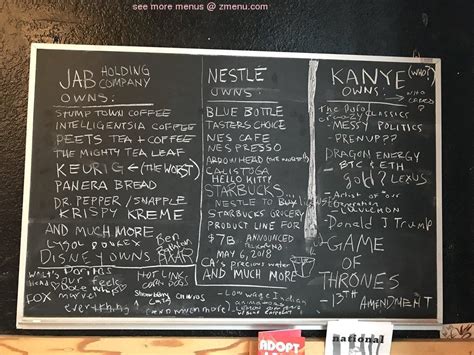 see more menus @ zmenu.com
JAB HOLDING COMPANY
OWNS:
STUMP TOWN COFFEE
INTELLIGENTSIA COFFEE
PEETS TEA + COFFEE
THE MIGHTY TEA LEAF
KEURIG ← (THE WORST)
PANERA BREAD
DR. PEPPER / SNAPPLE
KRISPY KREME
AND MUCH MORE
DISNEY OWNS
Doritos
FOX
marvel
everything
HOT LINK
CORN DOGS
NESTLÉ
OWNS:
BLUE BOTTLE
TASTERS CHOICE
NES CAFE
NESPRESSO
ARROWHEAD
CALISTOGA
HELLO KITTY
STARBUCKS...
NESTLE TO BUY
STARBUCKS GROCERY
PRODUCT LINE FOR
$7B ANNOUNCED
MAY 6, 2018
CA's precious water
AND MUCH MORE
Low wage
KANYE (WHO?)
OWNS:
WHO CARES?
- MESSY POLITICS
- PRENUP??
DRAGON ENERGY
- BTC & ETH
gold? LEXUS
- Artist of our
Generation
- Donald J Trump
- GAME OF
THRONES
- 13th
AMENDMENT
ADOPT
national